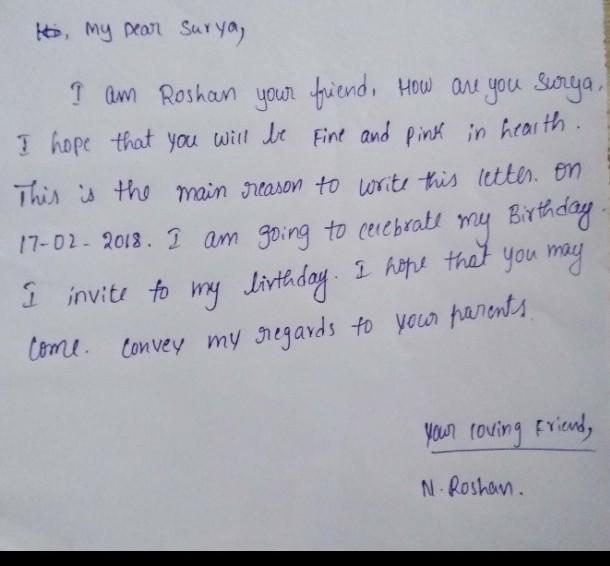 Hi, My Dear Surya,
I am Roshan your friend, How are you Surya.
I hope that you will be Fine and Pink in hearth.
This is the main reason to write this letter. On
17-02-2018. I am going to celebrate my Birthday.
I invite to my birthday. I hope that you may
Come. Convey my regards to your parents.
Your loving Friend,
N. Roshan.